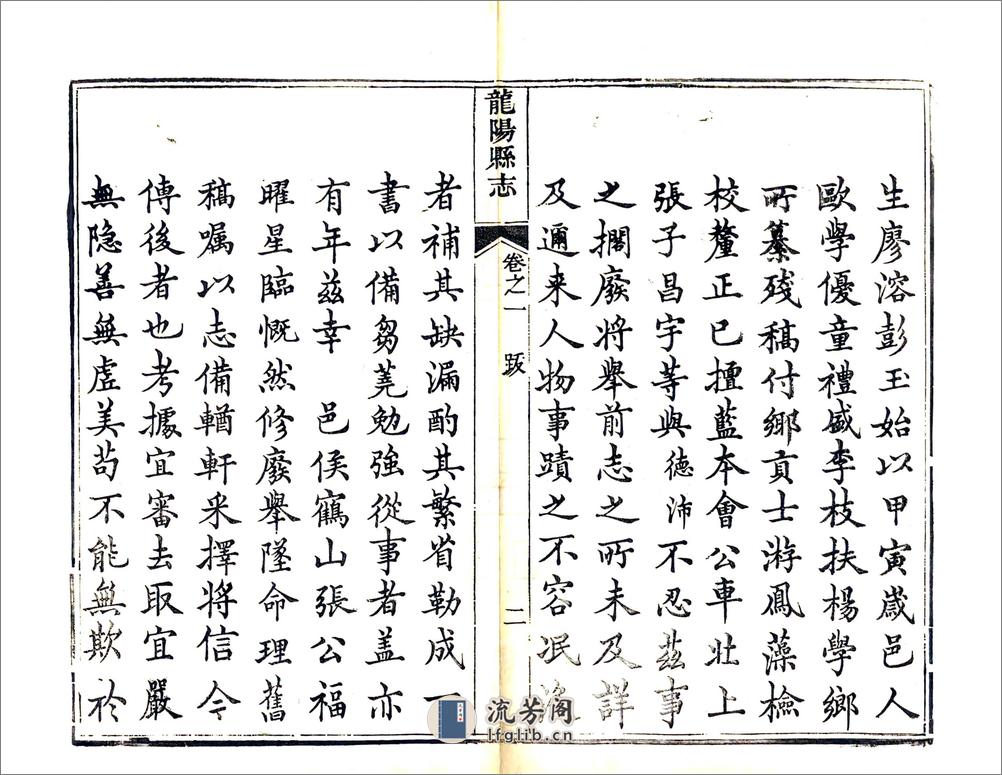 生廖溶彭玉始以甲寅歲邑人
歐學優童禮盛李枝扶楊學鄉
所纂殘稿付鄉貢士游鳳藻檢
校釐正已擅藍本會公車北上
張子昌宇等與德沛不忍茲事
之擱廢將舉前志之所未及詳
及邇来人物事蹟之不容泯
龍陽縣志
卷之一 跋 二
者補其缺漏酌其繁省勒成一
書以備芻蕘勉強從事者盖亦
有年茲幸 邑侯鶴山張公福
曜星臨慨然修廢舉墜命理舊
稿嘱以志備輶軒采擇将信今
傳後者也考據宜審去取宜嚴
無隐善無虛美苟不能無欺於
流芳阁
lfglib.cn